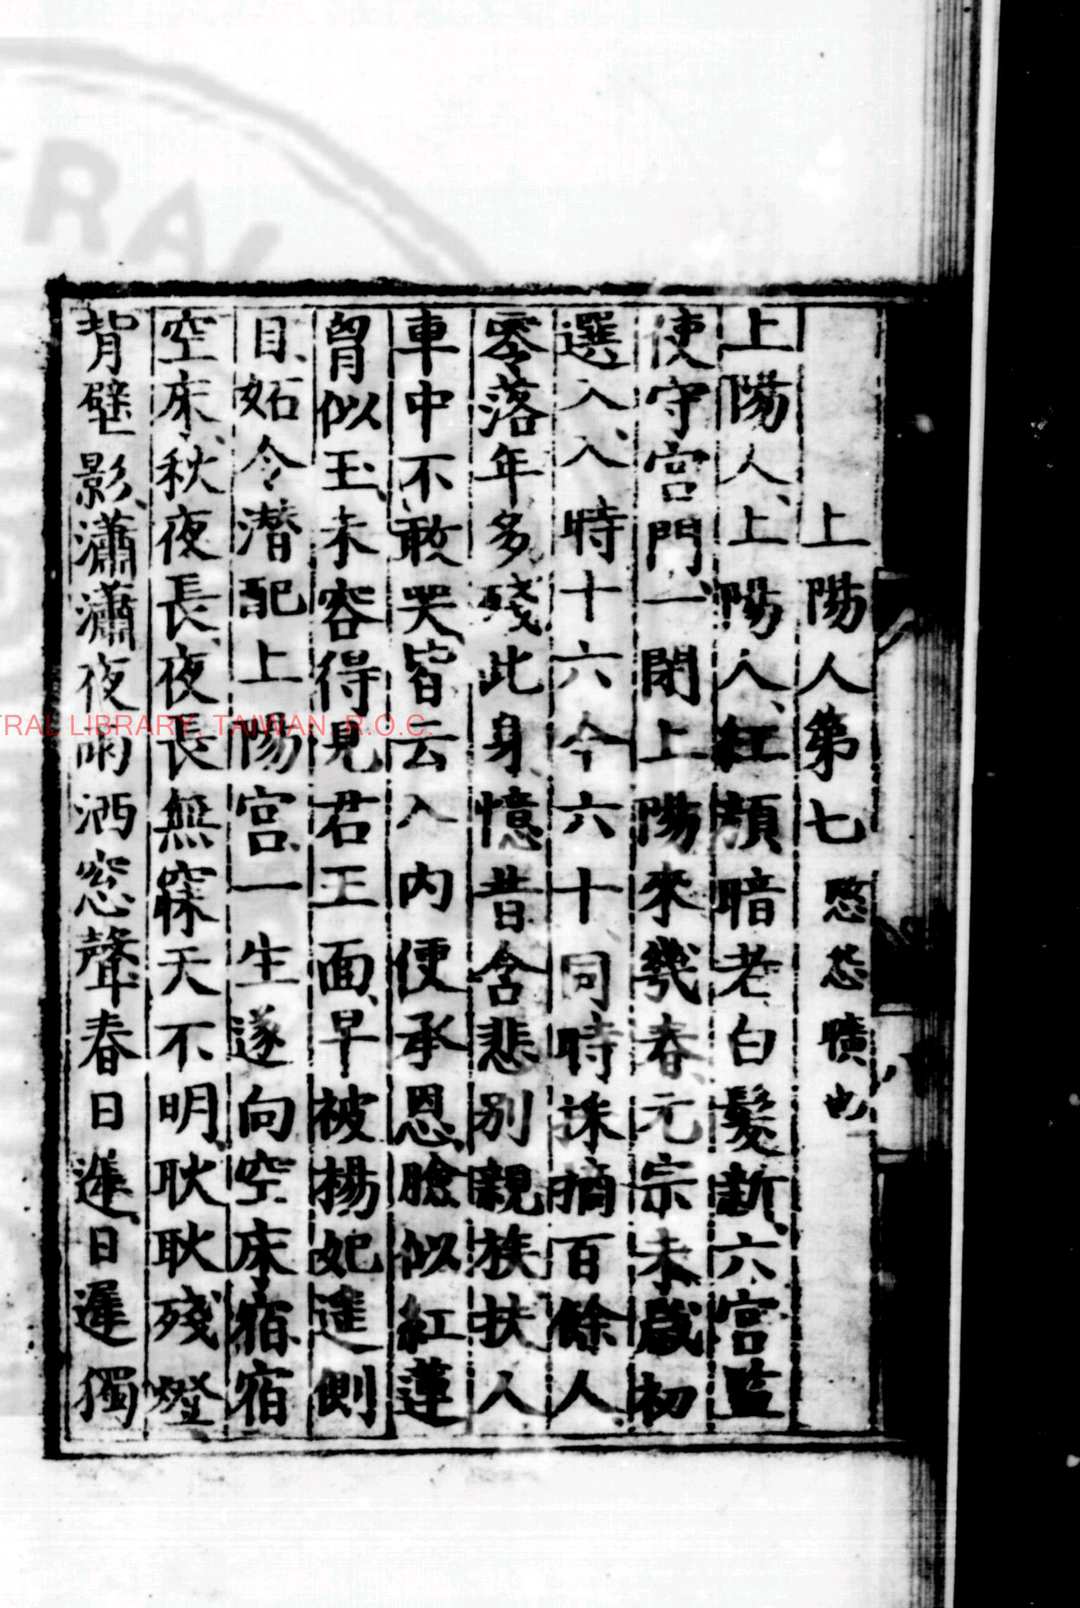 上陽人第七 愍怨曠也
上陽人上陽人紅顏暗老白髮新六宮監
使守宮門一閉上陽來幾春元宗末歲初
選入入時十六今六十同時採摘百餘人
零落年多殘此身憶昔含悲別親族扶入
車中不敢哭皆云入內便承恩臉似紅蓮
胷似玉未容得見君王面早被楊妃遙側
目妬令潛配上陽宮一生遂向空床宿宿
空床秋夜長夜長無寐天不明耿耿殘燈
背壁影瀟瀟夜雨洒窓聲春日遲日遲獨
TRAL LIBRARY, TAIWAN, R.O.C.